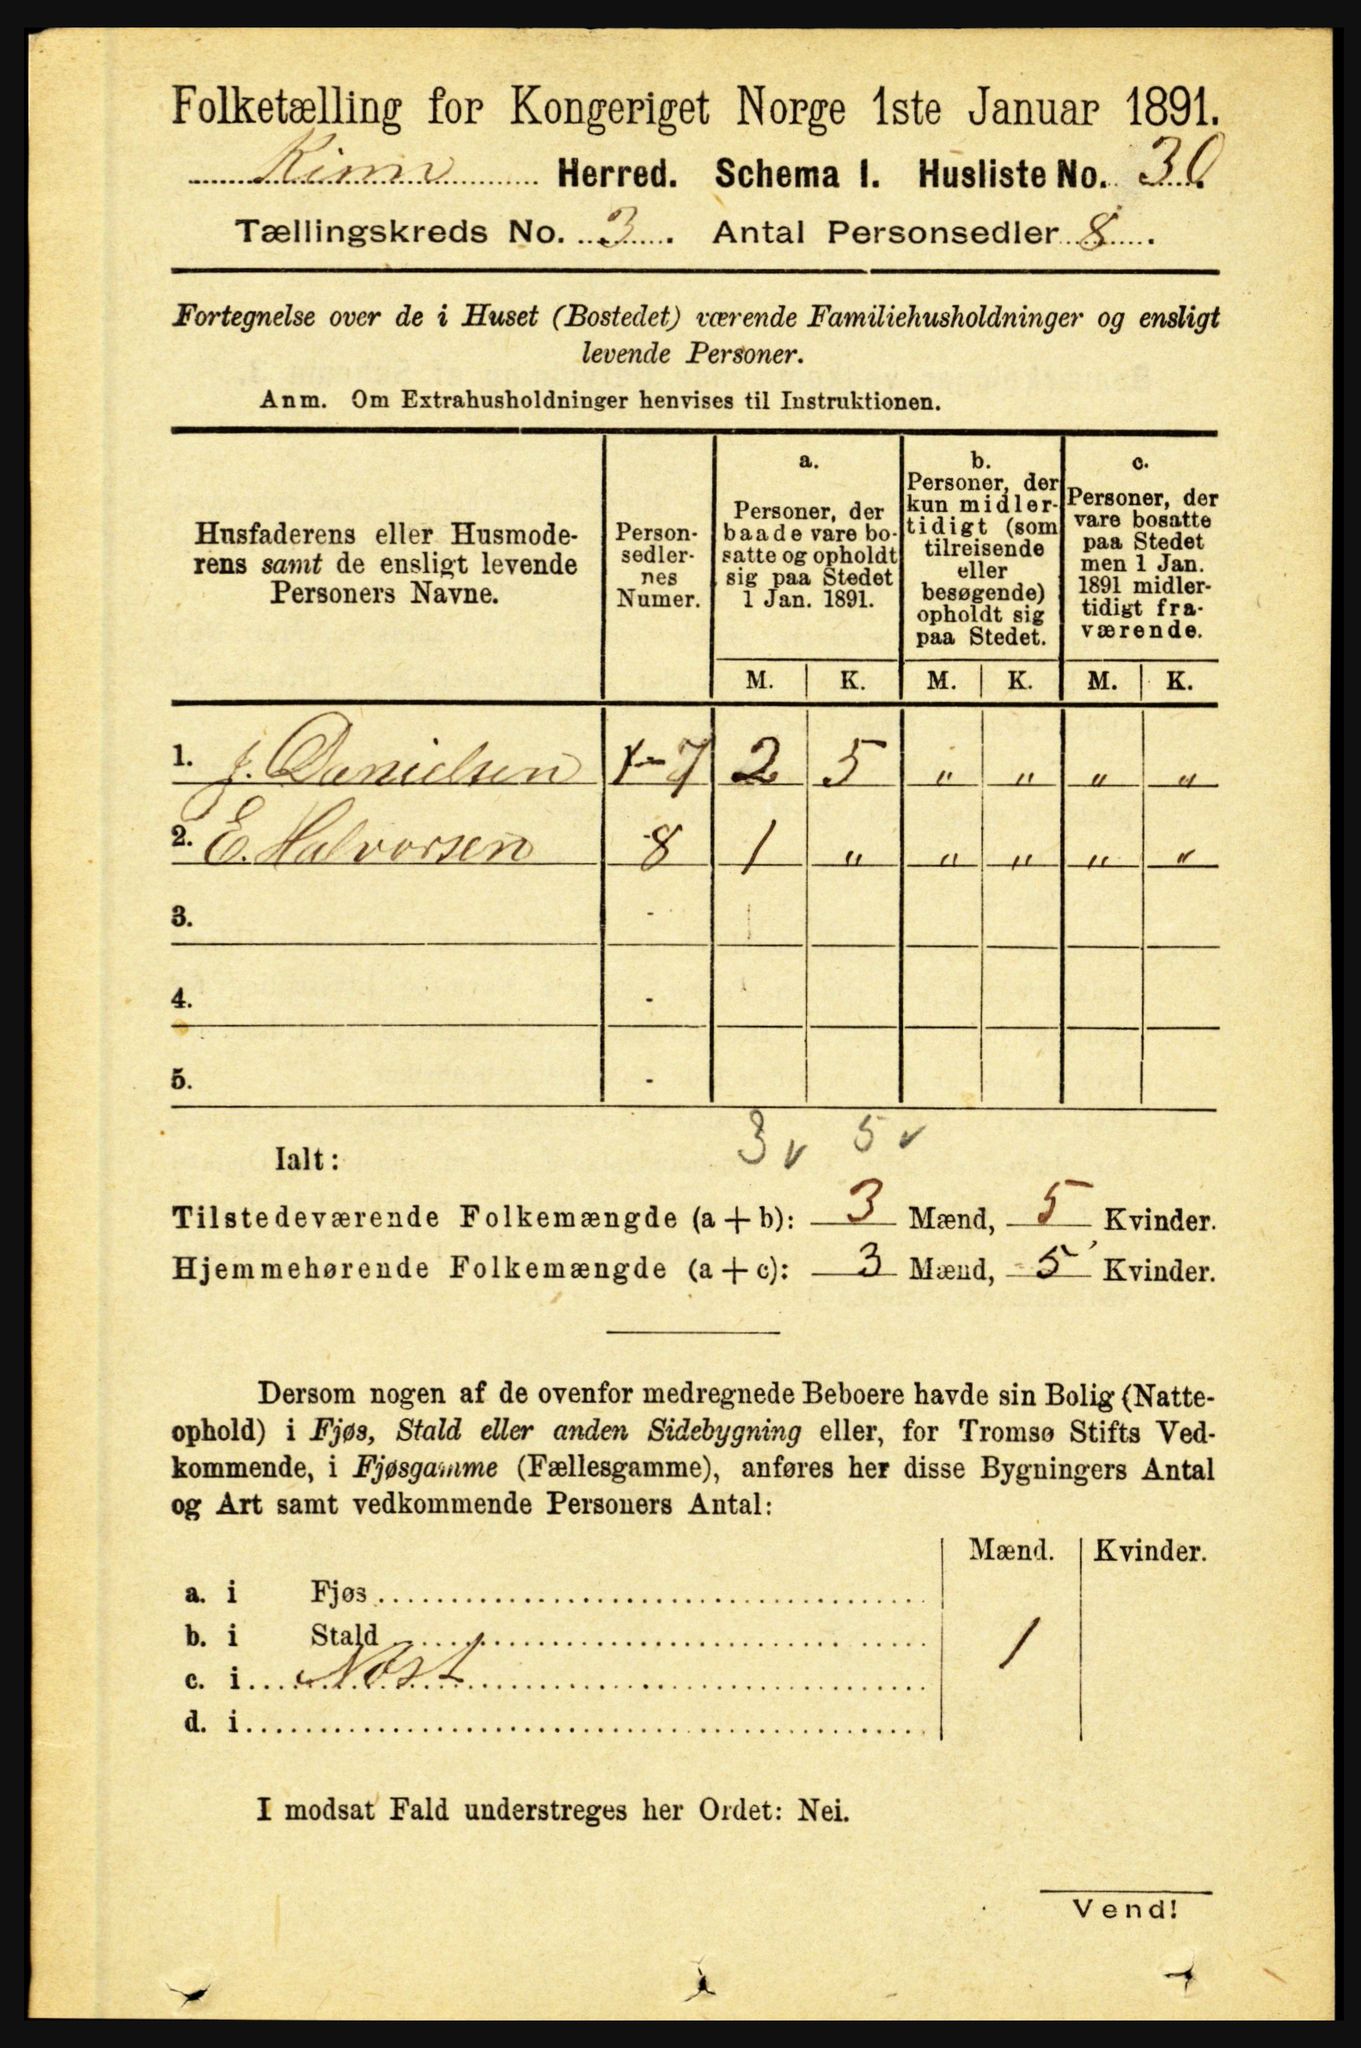 Folketælling for Kongeriget Norge 1ste Januar 1891.
Kinn Herred. Schema I. Husliste No. 30
Tællingskreds No. 3. Antal Personsedler 8.
Fortegnelse over de i Huset (Bostedet) værende Familiehusholdninger og ensligt
levende Personer.
Anm. Om Extrahusholdninger henvises til Instruktionen.
Husfaderens eller Husmode-
rens samt de ensligt levende
Personers Navne.
Person-
sedler-
nes
Numer.
a.
Personer, der
baade vare bo-
satte og opholdt
sig paa Stedet
1 Jan. 1891.
b.
Personer, der
kun midler-
tidigt (som
tilreisende
eller
besøgende)
opholdt sig
paa Stedet.
c.
Personer, der
vare bosatte
paa Stedet
men 1 Jan.
1891 midler-
tidigt fra-
værende.
M. K. M. K. M. K.
1. J. Danielsen 1-7 2 5 " " " "
2. E. Halvorsen 8 1 " " " " "
3. -
4. -
5. -
3 v 5 v
Ialt:
Tilstedeværende Folkemængde (a + b): 3 Mænd, 5 Kvinder.
Hjemmehørende Folkemængde (a + c): 3 Mænd, 5 Kvinder.
Dersom nogen af de ovenfor medregnede Beboere havde sin Bolig (Natte-
ophold) i Fjøs, Stald eller anden Sidebygning eller, for Tromsø Stifts Ved-
kommende, i Fjøsgamme (Fællesgamme), anføres her disse Bygningers Antal
og Art samt vedkommende Personers Antal:
Mænd. Kvinder.
a. i Fjøs
b. i Stald
c. i Nøst 1
d. i
I modsat Fald understreges her Ordet: Nei.
Vend!